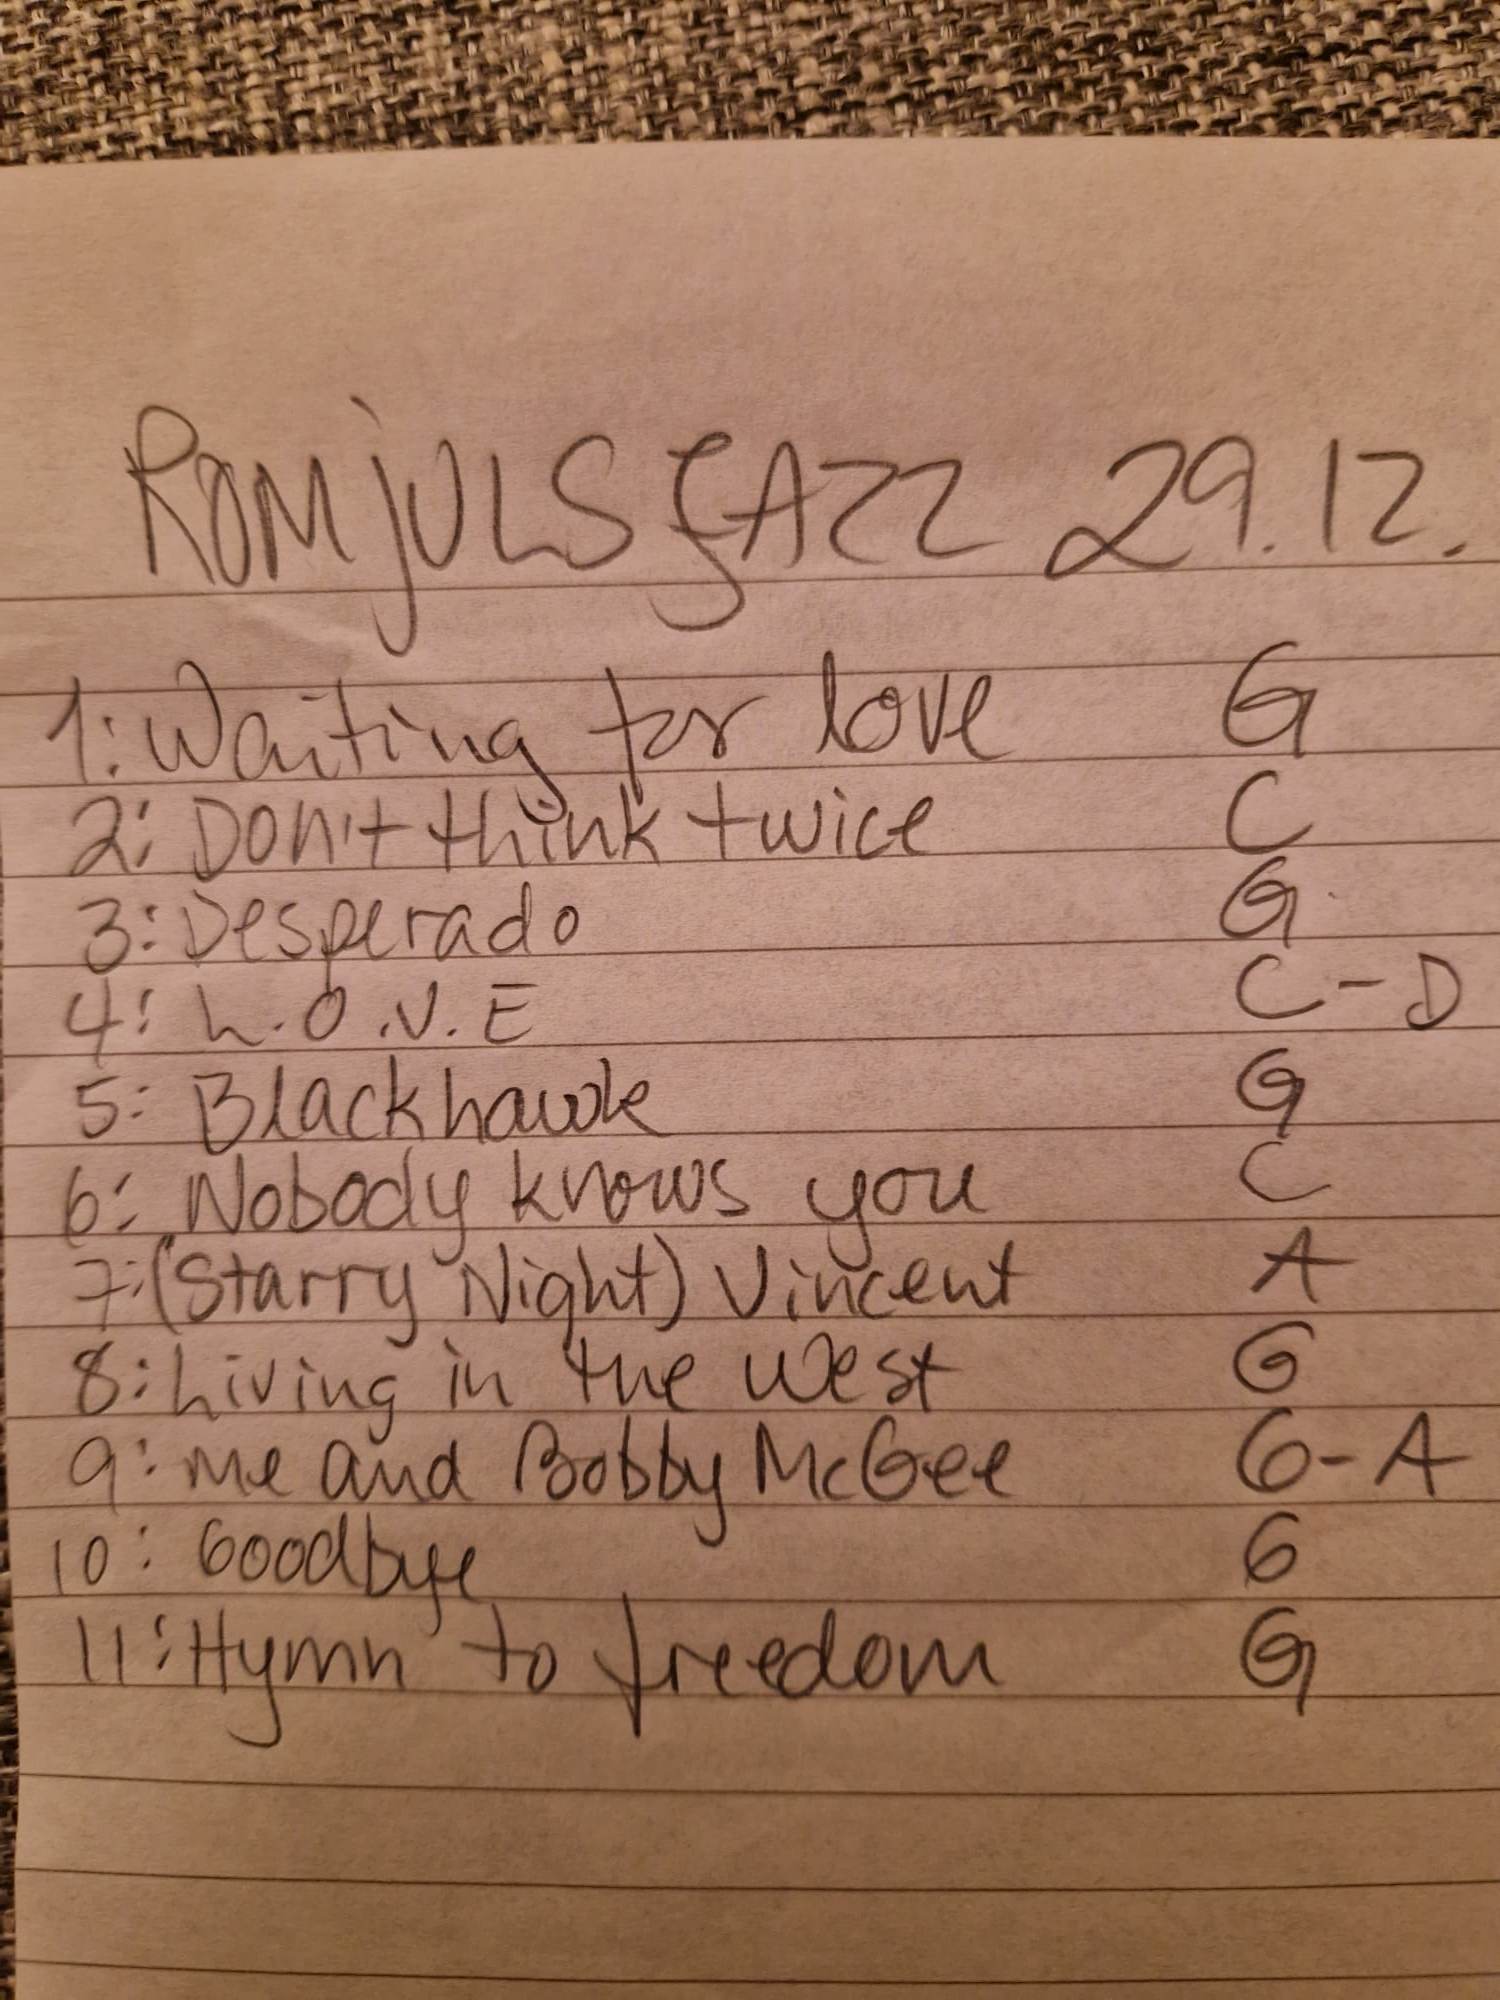 ROMjULSJAZZ 29.12.
1: Waiting for love G
2: Don't think twice C
3: Desperado G
4: L.O.V.E C-D
5: Blackhawk G
6: Nobody knows you C
7: (Starry Night) Vincent A
8: Living in the West G
9: me and Bobby McGee G-A
10: Goodbye G
11: Hymn to freedom G